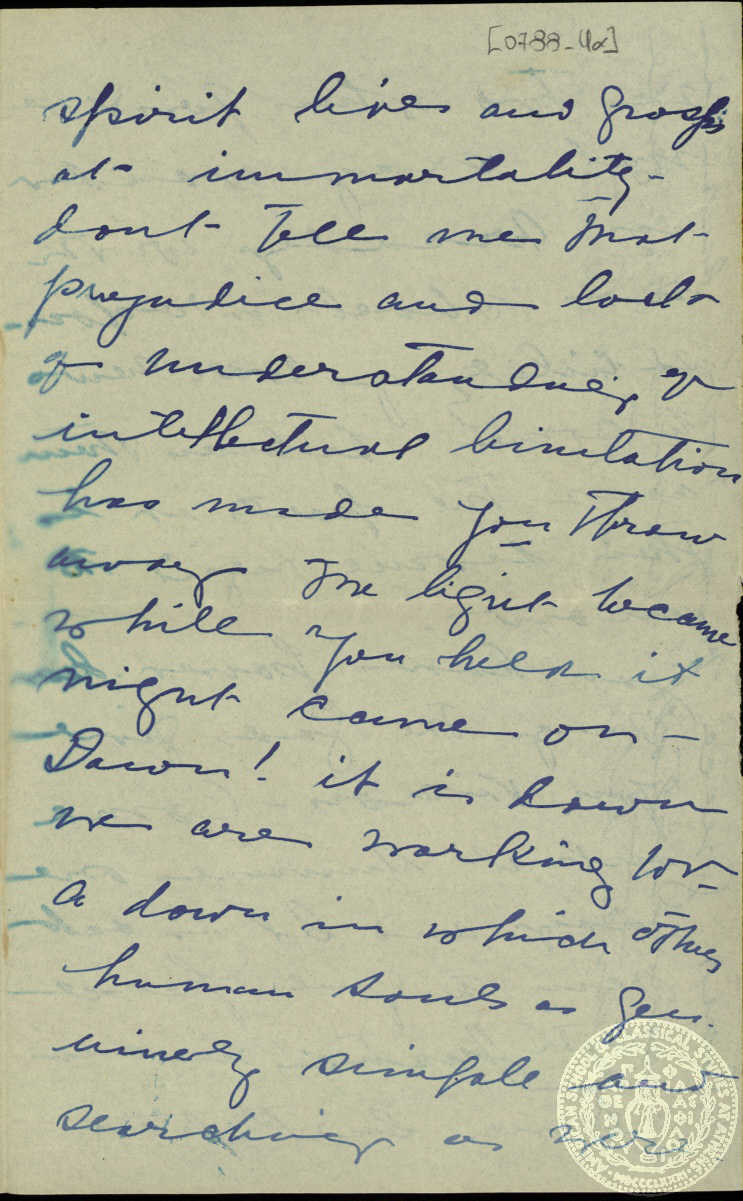 [0788-4α]
spirit lives and grasps
at immortality-
dont tell me that
prejudice and lack
of understanding or
intellectual limitation
has made you throw
away the light because
while you held it
night came on -
Dawn! it is dawn
we are working for
a dawn in which other
human souls as gen-
uinely simple and
searching as were
AMERICAN SCHOOL OF CLASSICAL STUDIES AT ATHENS
MDCCCLXXXI